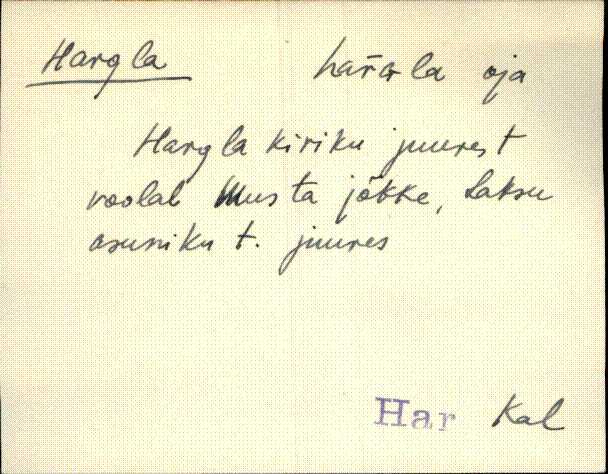 Hargla har̄Gla oja
Hargla kiriku juurest
voolab Musta jõkke, Laksu
asuniku t. juures
Har Kal